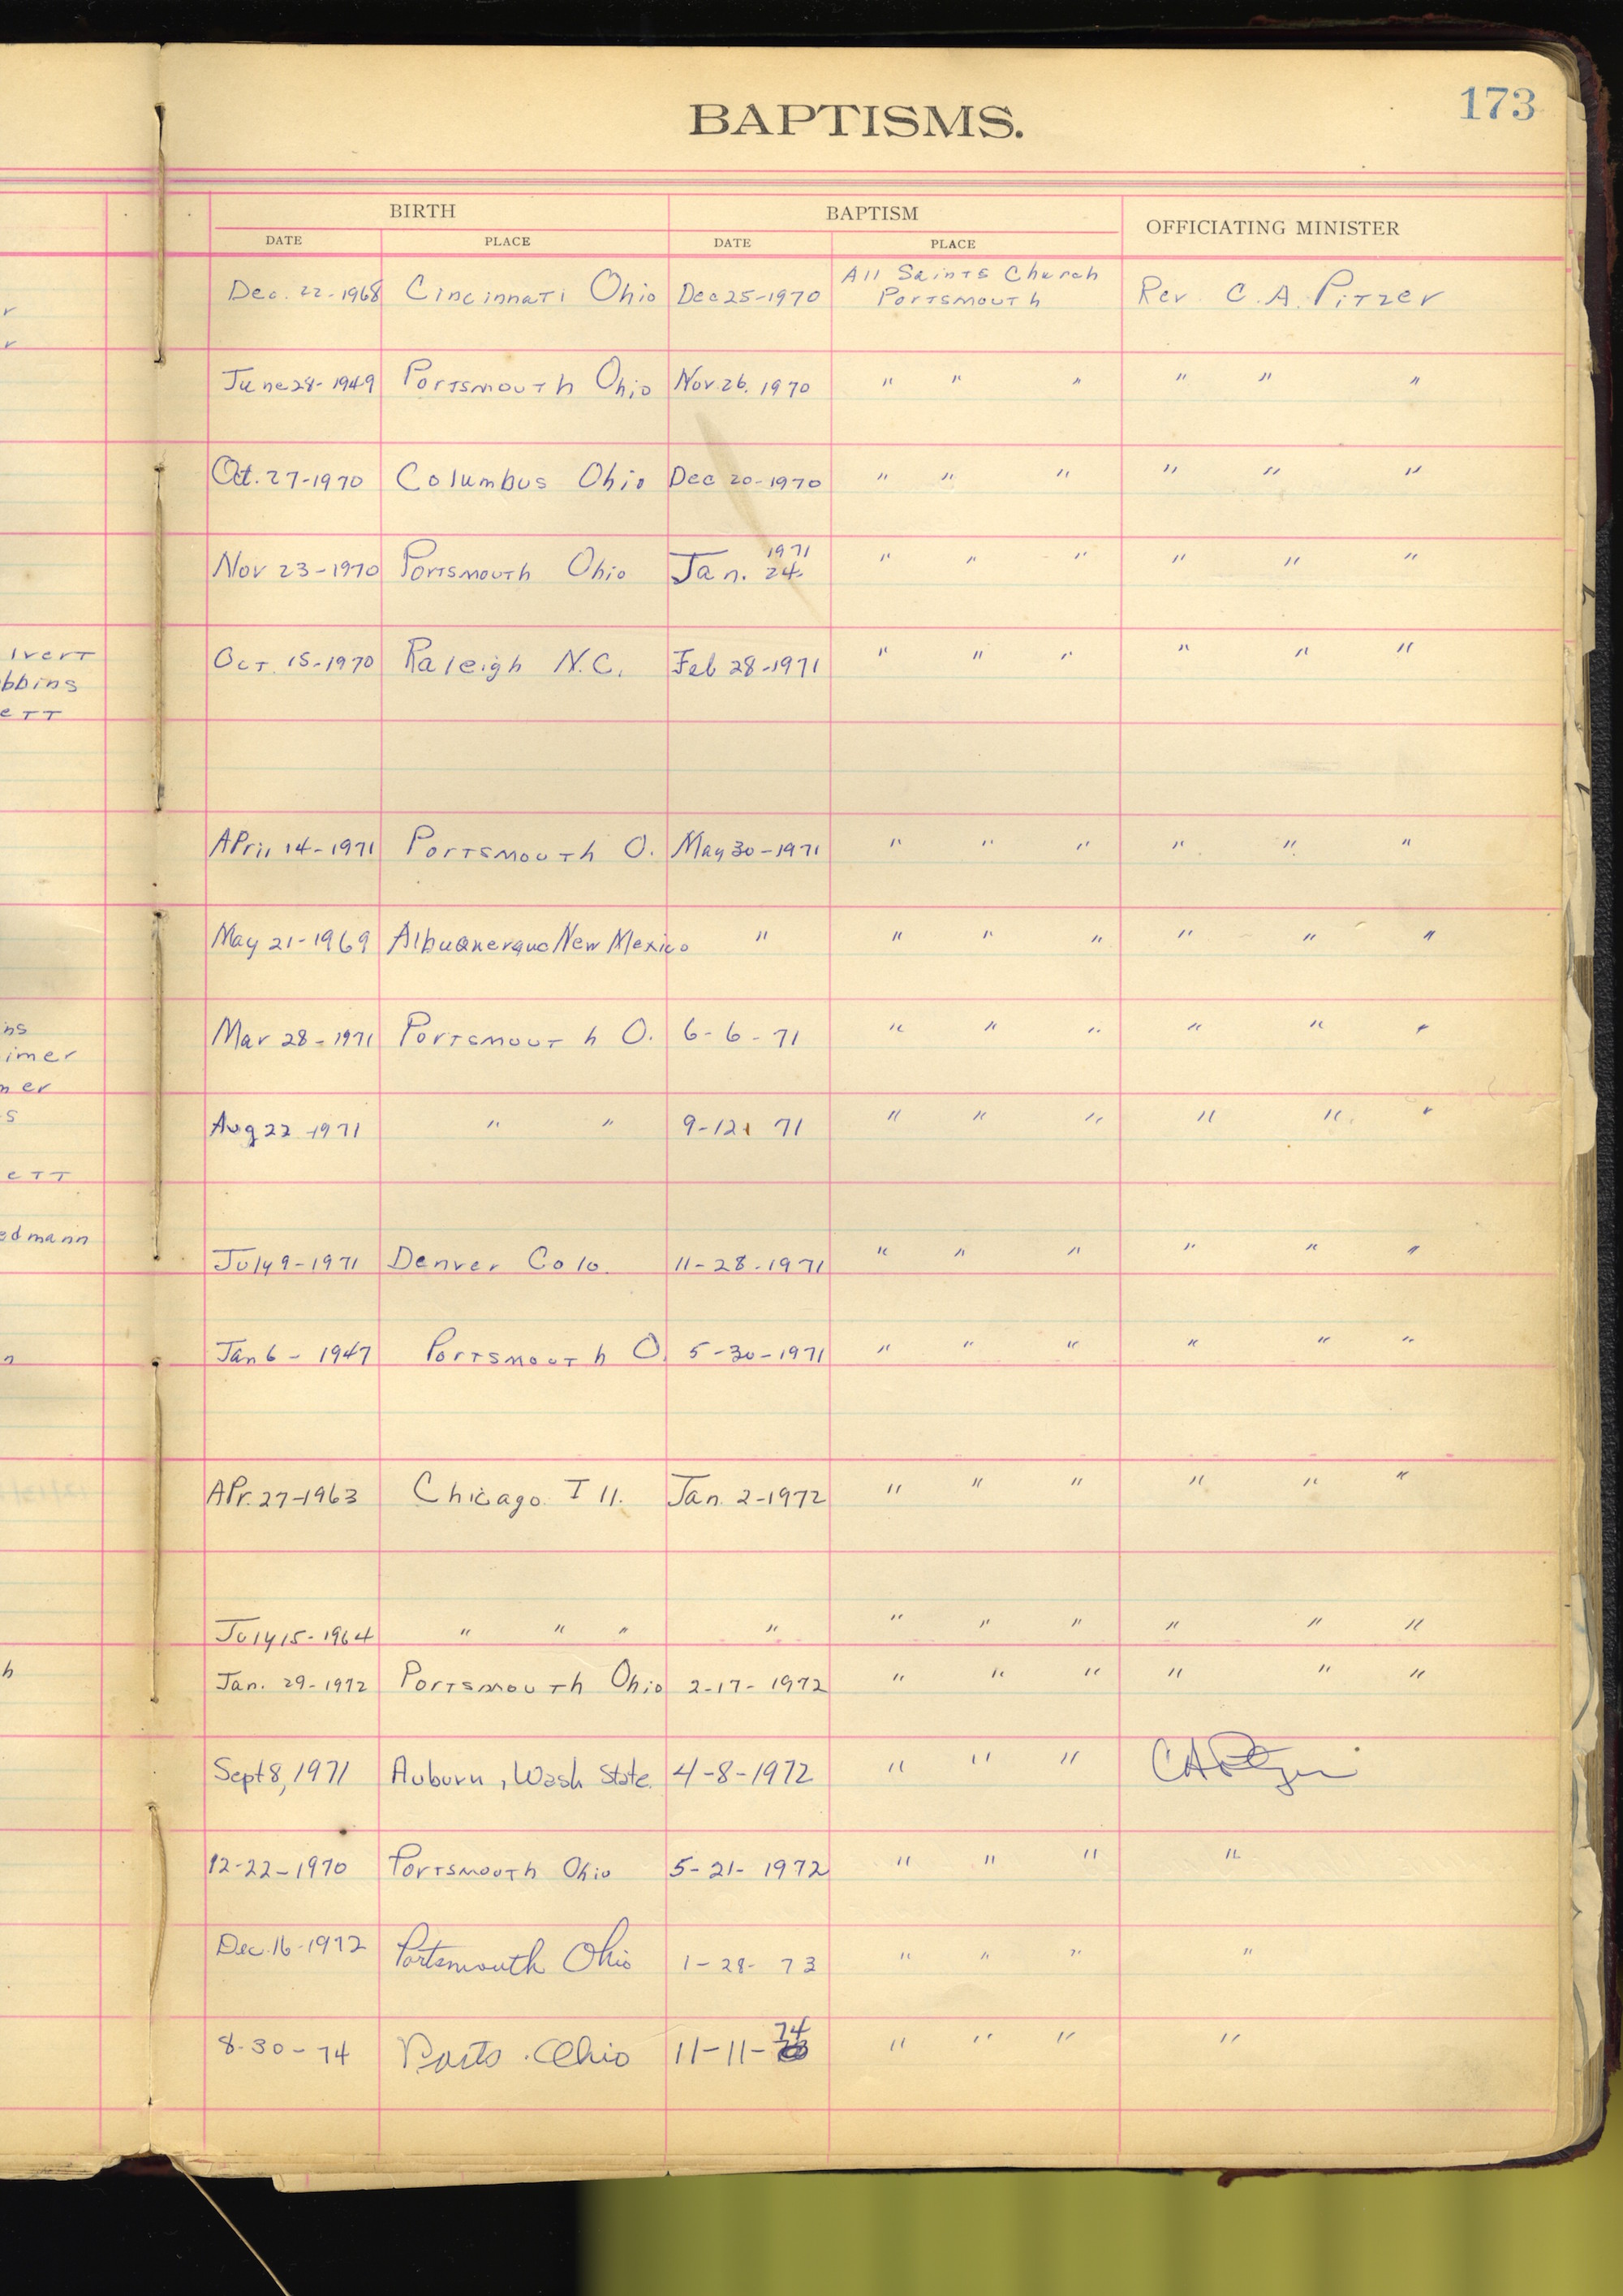 173
BAPTISMS.
BIRTH BAPTISM OFFICIATING MINISTER
DATE PLACE DATE PLACE
All Saints Church
Dec. 22-1968 Cincinnati Ohio Dec 25-1970 Portsmouth Rev. C. A. Pitzer
r
r
June 28-1949 Portsmouth Ohio Nov. 26. 1970 " " " " " "
Oct. 27-1970 Columbus Ohio Dec 20-1970 " " " " " "
1971
Nov 23-1970 Portsmouth Ohio Jan. 24- " " " " " "
lvert Oct. 15-1970 Raleigh N.C. Feb 28-1971 " " " " " "
bbins
ett
April 14-1971 Portsmouth O. May 30-1971 " " " " " "
May 21-1969 Albuqnerque New Mexico " " " " " " "
ns Mar 28-1971 Portsmouth O. 6-6-71 " " " " " "
imer
ner
s Aug 22-1971 " " 9-12- 71 " " " " " "
ett
edmann July 9-1971 Denver Colo. 11-28-1971 " " " " " "
n Jan 6- 1947 Portsmouth O. 5-30-1971 " " " " " "
Apr. 27-1963 Chicago Ill. Jan. 2-1972 " " " " " "
July 15-1964 " " " " " " " " " "
h Jan. 29-1972 Portsmouth Ohio 2-17-1972 " " " " " "
Sept 8, 1971 Auburn, Wash State. 4-8-1972 " " " CAPitzer
12-22-1970 Portsmouth Ohio 5-21-1972 " " " "
Dec. 16-1972 Portsmouth Ohio 1-28-73 " " " "
74
8-30-74 Ports. Ohio 11-11- " " " "